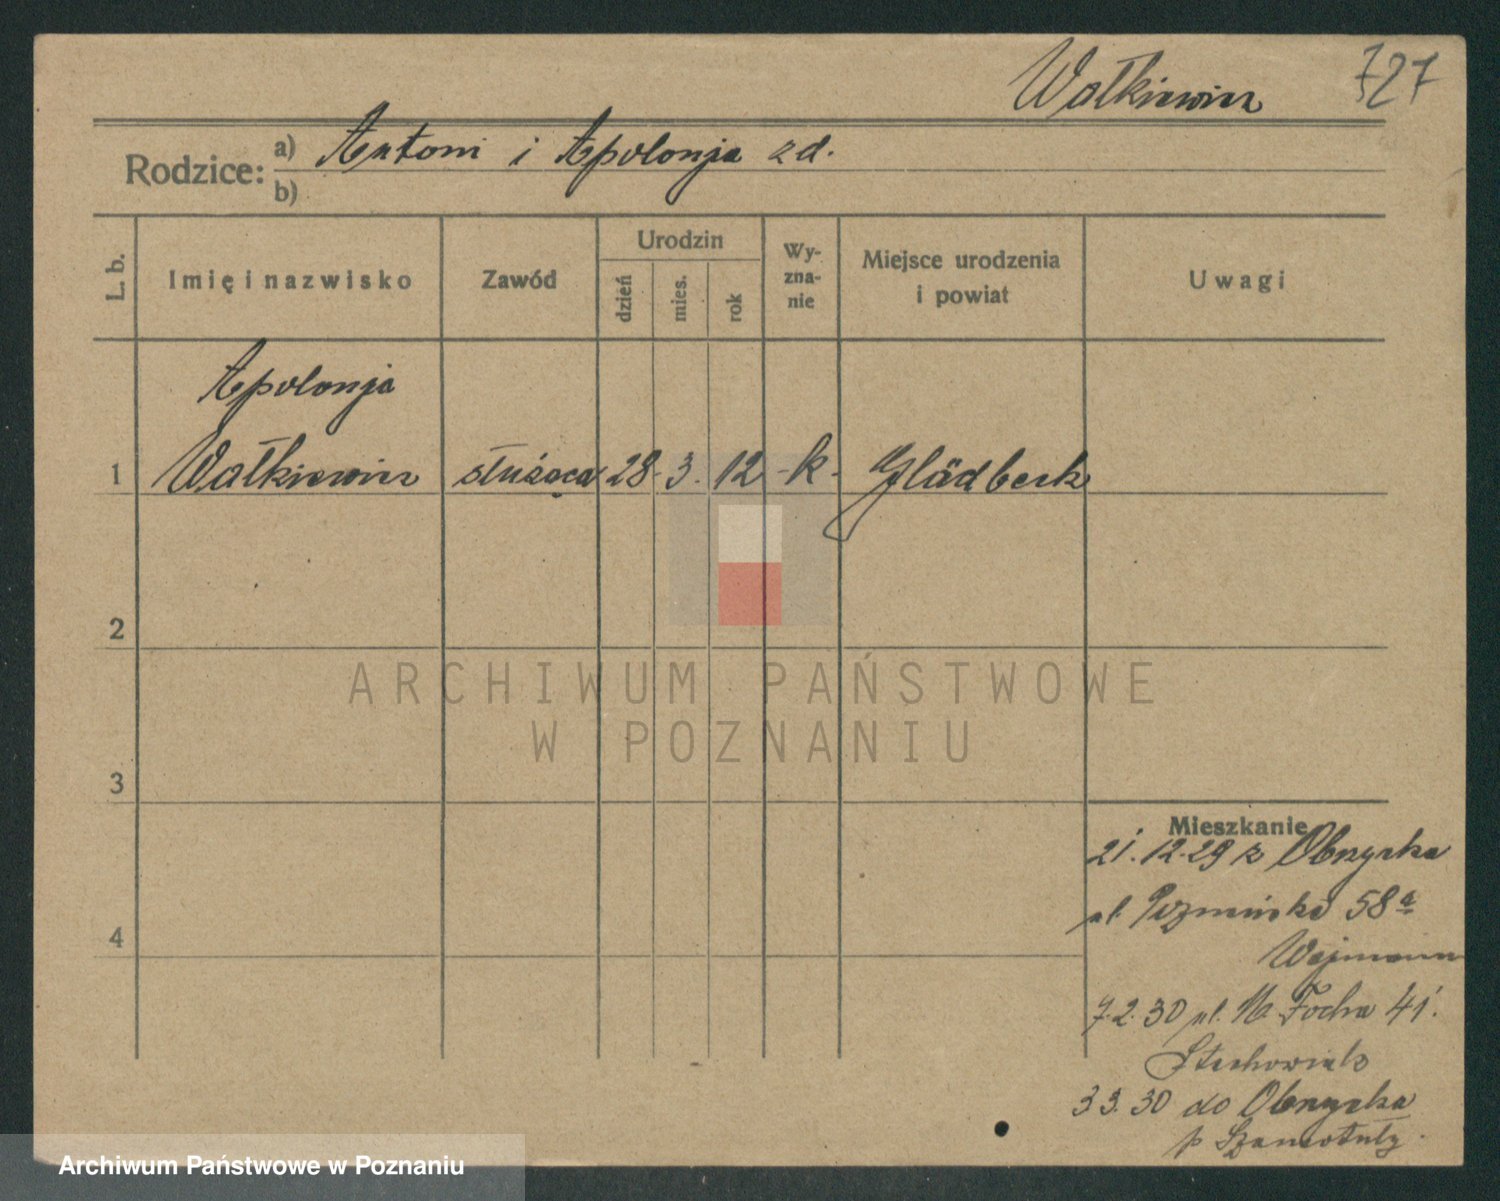 Wałkiewicz 727
Rodzice: a) Antoni i Apolonja zd.
b)
L. b.
Imię i nazwisko
Zawód
Urodzin
dzień
mies.
rok
Wy-
zna-
nie
Miejsce urodzenia
i powiat
Uwagi
Apolonja
1 Wałkiewicz służąca 28. 3. 12 -k- Glädbeck
2
3
4
Mieszkanie
21.12.29 z Obrzycka
ul. Poznańska 58a
Wejmann
7.2.30 ul. M. Focha 41.
Stechowiak
3 3. 30 do Obrzycka
p Szamotuły.
ARCHIWUM PAŃSTWOWE
W POZNANIU
Archiwum Państwowe w Poznaniu